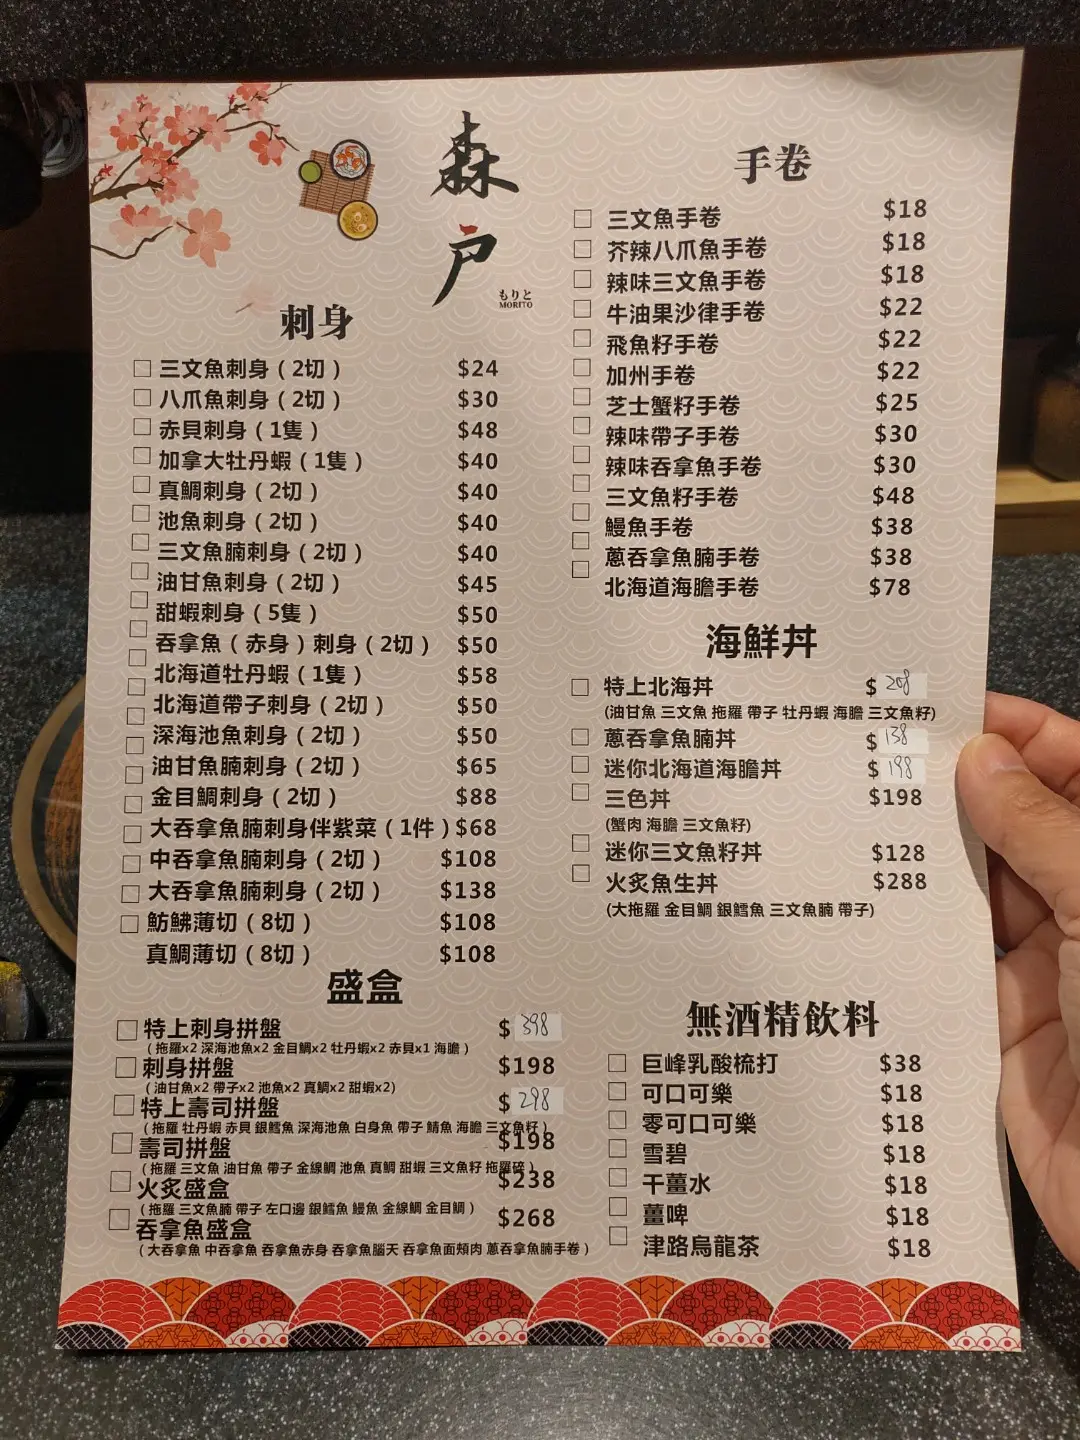 森戸
もりと
MORITO
刺身
三文魚刺身(2切) $24
八爪魚刺身(2切) $30
赤貝刺身(1隻) $48
加拿大牡丹蝦(1隻) $40
真鯛刺身(2切) $40
池魚刺身(2切) $40
三文魚腩刺身(2切) $40
油甘魚刺身(2切) $45
甜蝦刺身(5隻) $50
吞拿魚(赤身)刺身(2切) $50
北海道牡丹蝦(1隻) $58
北海道帶子刺身(2切) $50
深海池魚刺身(2切) $50
油甘魚腩刺身(2切) $65
金目鯛刺身(2切) $88
大吞拿魚腩刺身伴紫菜(1件) $68
中吞拿魚腩刺身(2切) $108
大吞拿魚腩刺身(2切) $138
魴鮄薄切(8切) $108
真鯛薄切(8切) $108
盛盒
特上刺身拼盤 $398
(拖羅x2 深海池魚x2 金目鯛x2 牡丹蝦x2 赤貝x1 海膽)
刺身拼盤 $198
(油甘魚x2 帶子x2 池魚x2 真鯛x2 甜蝦x2)
特上壽司拼盤 $298
(拖羅 牡丹蝦 赤貝 銀鱈魚 深海池魚 白身魚 帶子 鯖魚 海膽 三文魚籽)
壽司拼盤 $198
(拖羅 三文魚 油甘魚 帶子 金線鯛 池魚 真鯛 甜蝦 三文魚籽 拖羅碎)
火炙盛盒 $238
(拖羅 三文魚腩 帶子 左口邊 銀鱈魚 鰻魚 金線鯛 金目鯛)
吞拿魚盛盒 $268
(大吞拿魚 中吞拿魚 吞拿魚赤身 吞拿魚腦天 吞拿魚面頰肉 蔥吞拿魚腩手卷)
手卷
三文魚手卷 $18
芥辣八爪魚手卷 $18
辣味三文魚手卷 $18
牛油果沙律手卷 $22
飛魚籽手卷 $22
加州手卷 $22
芝士蟹籽手卷 $25
辣味帶子手卷 $30
辣味吞拿魚手卷 $30
三文魚籽手卷 $48
鰻魚手卷 $38
蔥吞拿魚腩手卷 $38
北海道海膽手卷 $78
海鮮丼
特上北海丼 $208
(油甘魚 三文魚 拖羅 帶子 牡丹蝦 海膽 三文魚籽)
蔥吞拿魚腩丼 $138
迷你北海道海膽丼 $198
三色丼 $198
(蟹肉 海膽 三文魚籽)
迷你三文魚籽丼 $128
火炙魚生丼 $288
(大拖羅 金目鯛 銀鱈魚 三文魚腩 帶子)
無酒精飲料
巨峰乳酸梳打 $38
可口可樂 $18
零可口可樂 $18
雪碧 $18
干薑水 $18
薑啤 $18
津路烏龍茶 $18